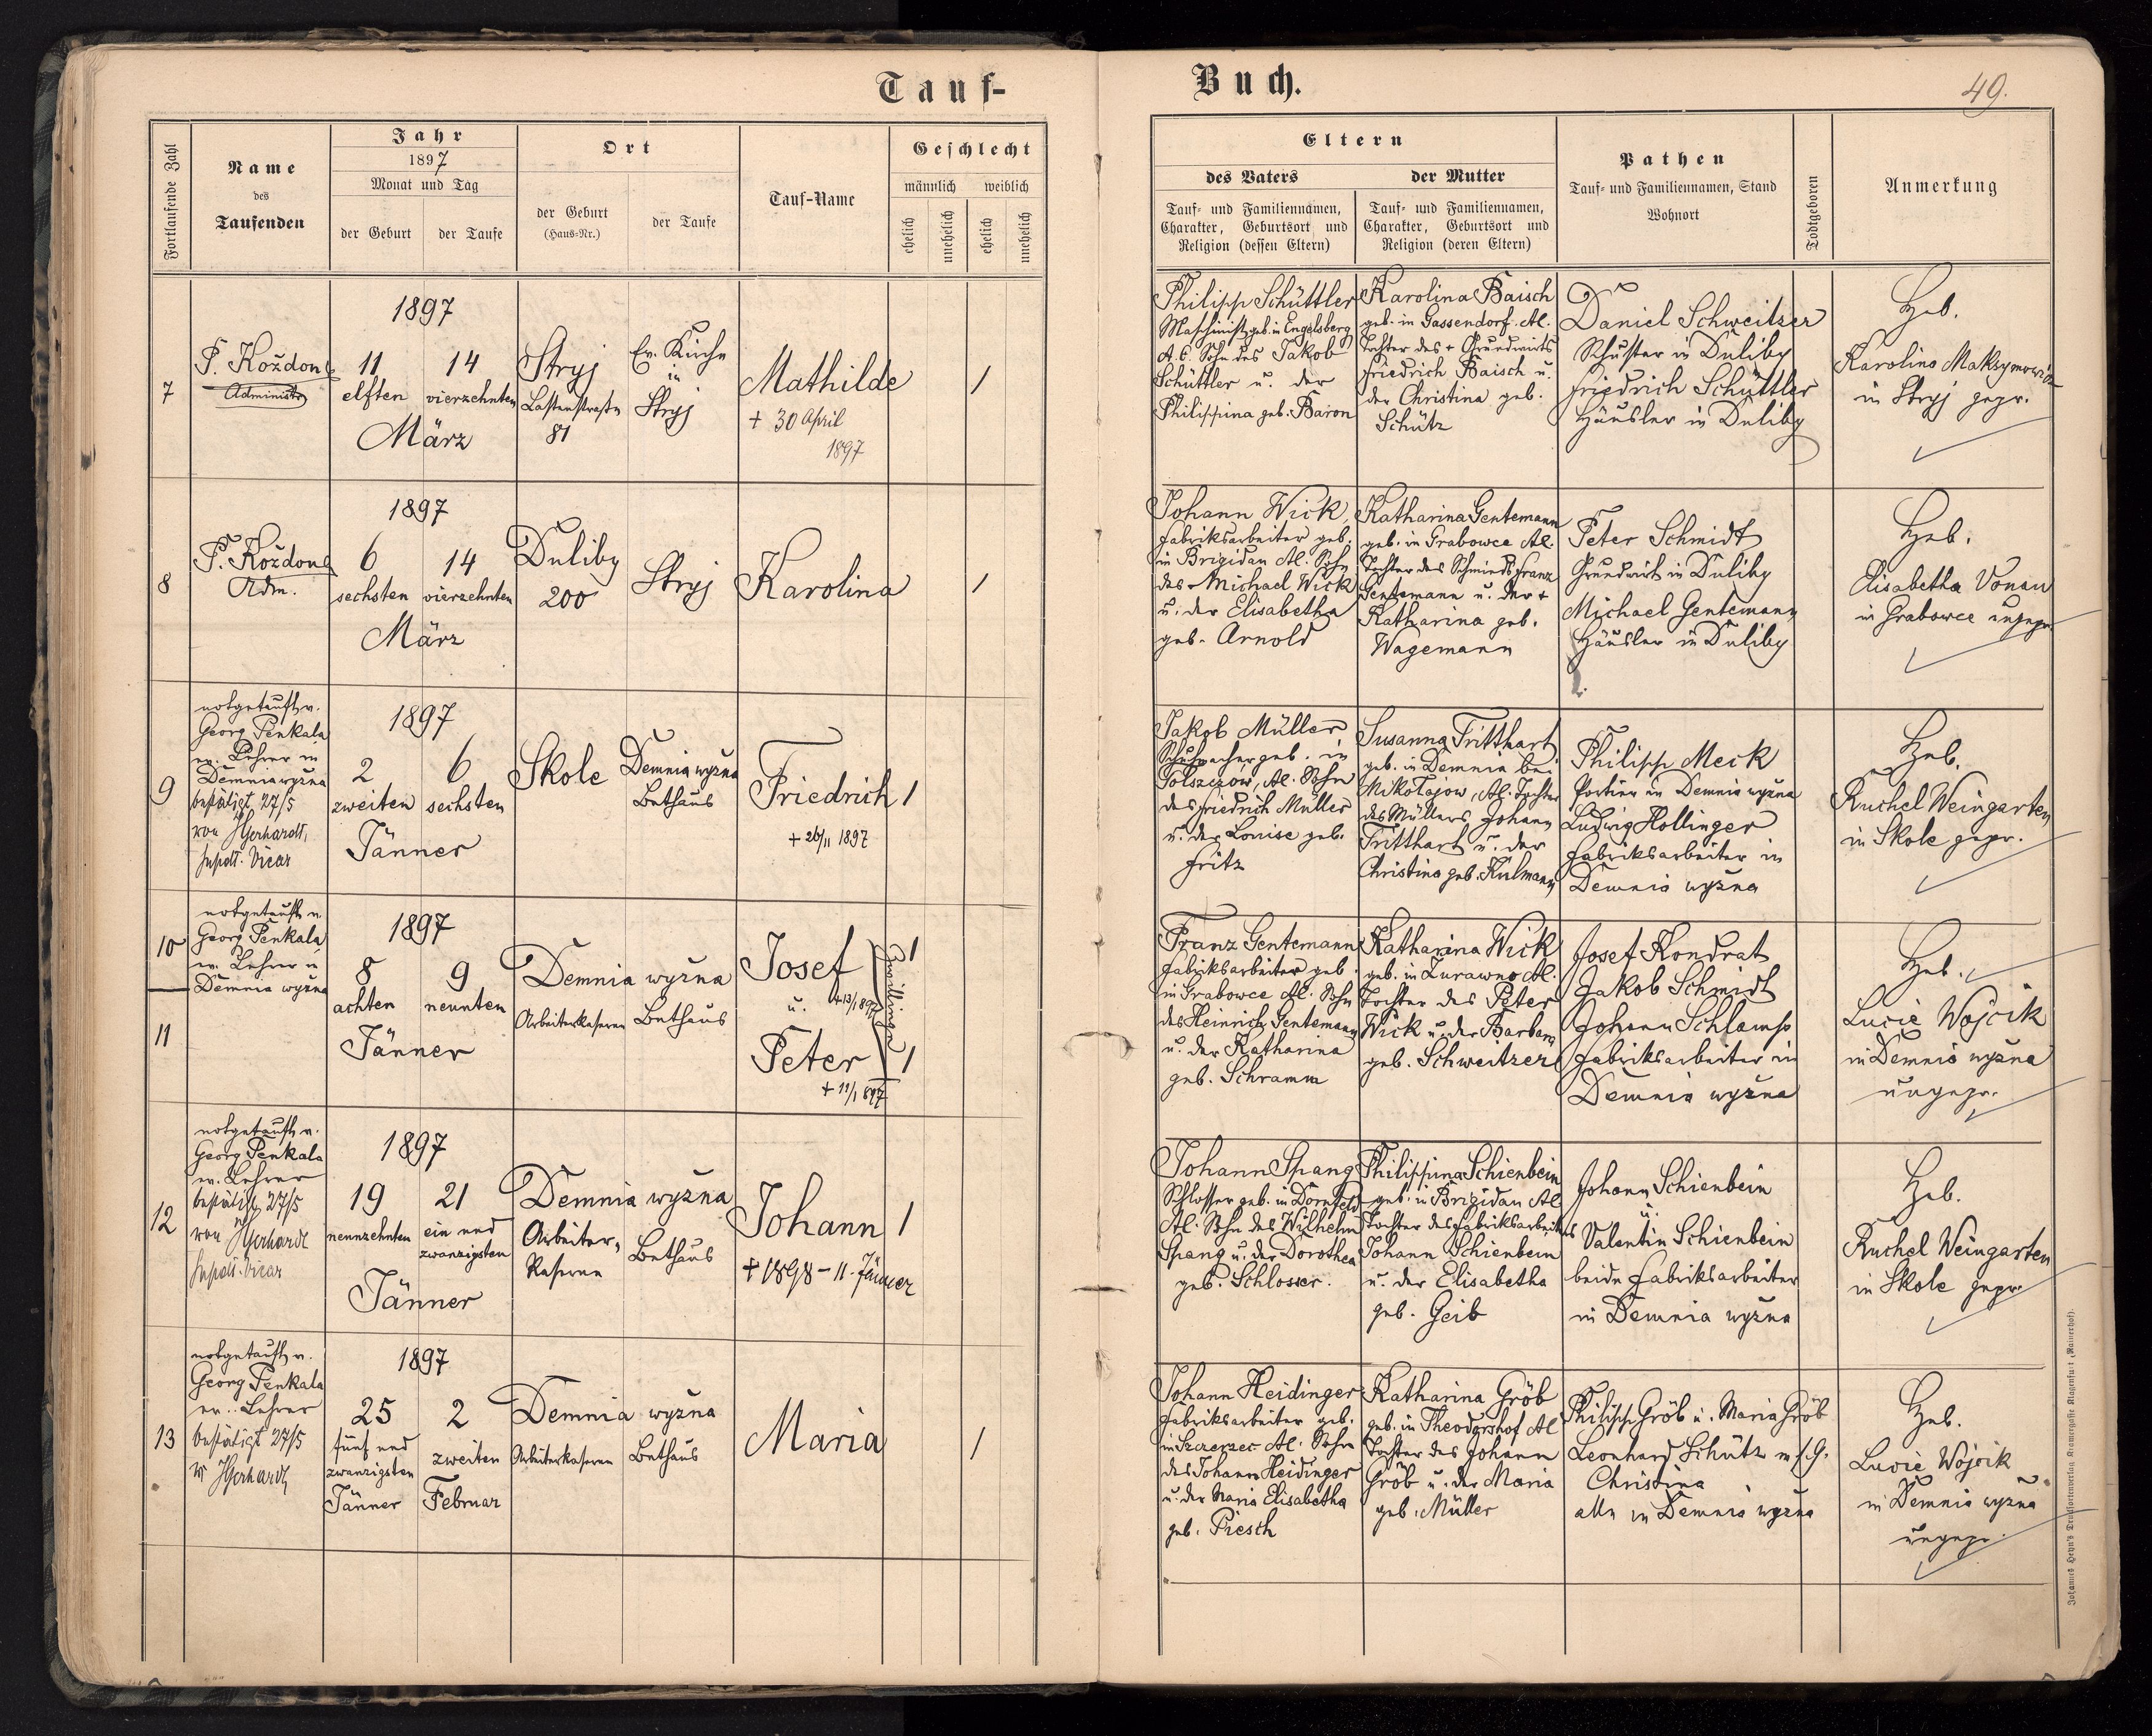 Tauf-
Buch.
49.
Fortlaufende Zahl
Name
des
Taufenden
Jahr
1897
Monat und Tag
der Geburt
der Taufe
Ort
der Geburt
(Haus-Nr.)
der Taufe
Tauf-Name
Geschlecht
männlich
weiblich
ehelich
unehelich
ehelich
unehelich
Eltern
des Vaters
Tauf- und Familiennamen,
Charakter, Geburtsort und
Religion (dessen Eltern)
der Mutter
Tauf- und Familiennamen,
Charakter, Geburtsort und
Religion (deren Eltern)
Pathen
Tauf- und Familiennamen, Stand
Wohnort
Todtgeboren
Anmerkung
7
P. Koždoń
Administr
1897
11
elften
14
vierzehnten
März
Stryj
Lastenstraße
81
Ev. Kirche
in
Stryj
Mathilde
+ 30 April
1897
1
Philipp Schüttler
Maschinist geb. in Engelsberg
A. C. Sohn des Jakob
Schüttler u. der
Philippina geb. Baron
Karolina Baisch
geb. in Gassendorf. Al.
Tochter des + Grundwirts
Friedrich Baisch u.
der Christina geb.
Schütz
Daniel Schweitzer
Schuster in Duliby
Friedrich Schüttler
Häusler in Duliby
Heb.
Karolina Maksymowicz
in Stryj gepr.
8
P. Koždoń
Adm.
1897
6
sechsten
14
vierzehnten
März
Duliby
200
Stryj
Karolina
1
Johann Wick
Fabriksarbeiter geb.
in Brigidau Al. Sohn
des Michael Wick
u. der Elisabetha
geb. Arnold
Katharina Gentemann
geb. in Grabowce Al.
Tochter des Schmieds Franz
Gentemann u. der +
Katharina geb.
Wagemann
Peter Schmidt
Grundwirt in Duliby
Michael Gentemann
Häusler in Duliby
Heb.
Elisabetha Vonau
in Grabowce ungepr.
9
notgetauft v.
Georg Penkala
ev. Lehrer in
Demnia wyżna
bestätigt 27/5
von JGerhardt,
Supdt. Vicar
1897
2
zweiten
6
sechsten
Jänner
Skole
Demnia wyżna
Bethaus
Friedrich
+ 26/11 1897
1
Jakob Müller
Schuhmacher geb. in
Al. Sohn
des Friedrich Müller
u. der Louise geb.
Fritz
Susanna Tritthart
geb. in Demnia bei
Mikołajow, Al. Tochter
des Müllers Johann
Tritthart u. der
Christina geb. Kulmann
Philipp Meck
Portier in Demnia wyżna
Ludwig Hollinger
Fabriksarbeiter in
Demnia wyżna
Heb.
Ruchel Weingarten
in Skole gepr.
10
11
notgetauft v.
Georg Penkala
ev. Lehrer in
Demnia wyżna
1897
8
achten
9
neunten
Jänner
Demnia wyżna
Arbeiterkaserne
Bethaus
Josef
+ 13/1 897
u.
Peter
+ 11/1 897
Zwillinge
1
1
Franz Gentemann
Fabriksarbeiter geb.
in Grabowce Al. Sohn
des Heinrich Gentemann
u. der Katharina
geb. Schramm
Katharina Wick
geb. in Zurawno Al.
Tochter des Peter
Wick u. der Barbara
geb. Schweitzer
Josef Kondrat
Jakob Schmidt
Johann Schlamp
Fabriksarbeiter in
Demnia wyżna
Heb.
Lucie Wojcik
in Demnia wyżna
ungepr.
12
notgetauft v.
Georg Penkala
ev. Lehrer
bestätigt 27/5
von JGerhardt
Supdt. Vicar
1897
19
neunzehnten
21
ein und
zwanzigsten
Jänner
Demnia wyżna
Arbeiter-
Kaserne
Bethaus
Johann
+ 1898 - 11. Jänner
1
Johann Spang
Schlosser geb. in Dornfeld
Al. Sohn des Wilhelm
Spang u. der Dorothea
geb. Schlosser.
Philippina Schienbein
geb. in Brigidau Al
Tochter des Fabriksarbeiters
Johann Schienbein
u. der Elisabetha
geb. Geib
Johann Schienbein
u.
Valentin Schienbein
beide Fabriksarbeiter
in Demnia wyżna
Heb.
Ruchel Weingarten
in Skole gepr.
13
notgetauft v.
Georg Penkala
ev. Lehrer
bestätigt 27/5
v. JGerhardt
1897
25
fünf und
zwanzigsten
Jänner
2
zweiten
Februar
Demnia wyżna
Arbeiterkaserne
Bethaus
Maria
1
Johann Heidinger
Fabriksarbeiter geb.
in Szczerzec Al. Sohn
des Johann Heidinger
u. der Maria Elisabetha
geb. Piesch
Katharina Gröb
geb. in Theodorshof Al
Tochter des Johann
Gröb u. der Maria
geb. Müller
Philipp Gröb u. Maria Gröb
Leonhard Schütz m. s. G.
Christina
alle in Demnia wyżna
Heb.
Lucie Wojcik
in Demnia wyżna
ungepr.
Johannes Heyn's Drucksortenverlag Kramergasse Klagenfurt (Rainerhof).